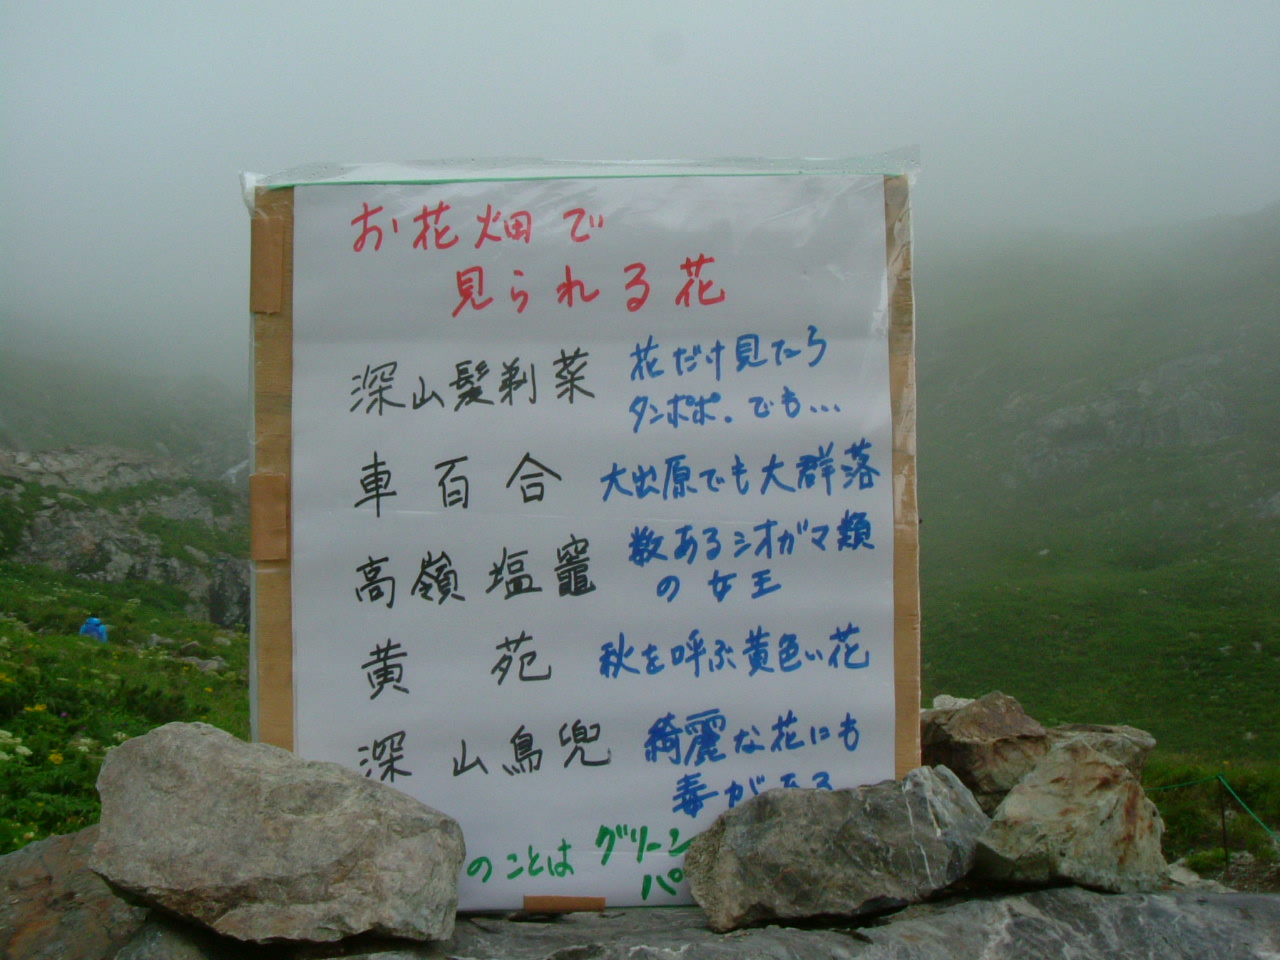 お花畑で
見られる花
深山髪剃菜 花だけ見たら
タンポポ。でも…
車百合 大出原でも大群落
高嶺塩竈 数あるシオガマ類
の女王
黄苑 秋を呼ぶ黄色い花
深山鳥兜 綺麗な花にも
毒がある
のことは グリーン
パ